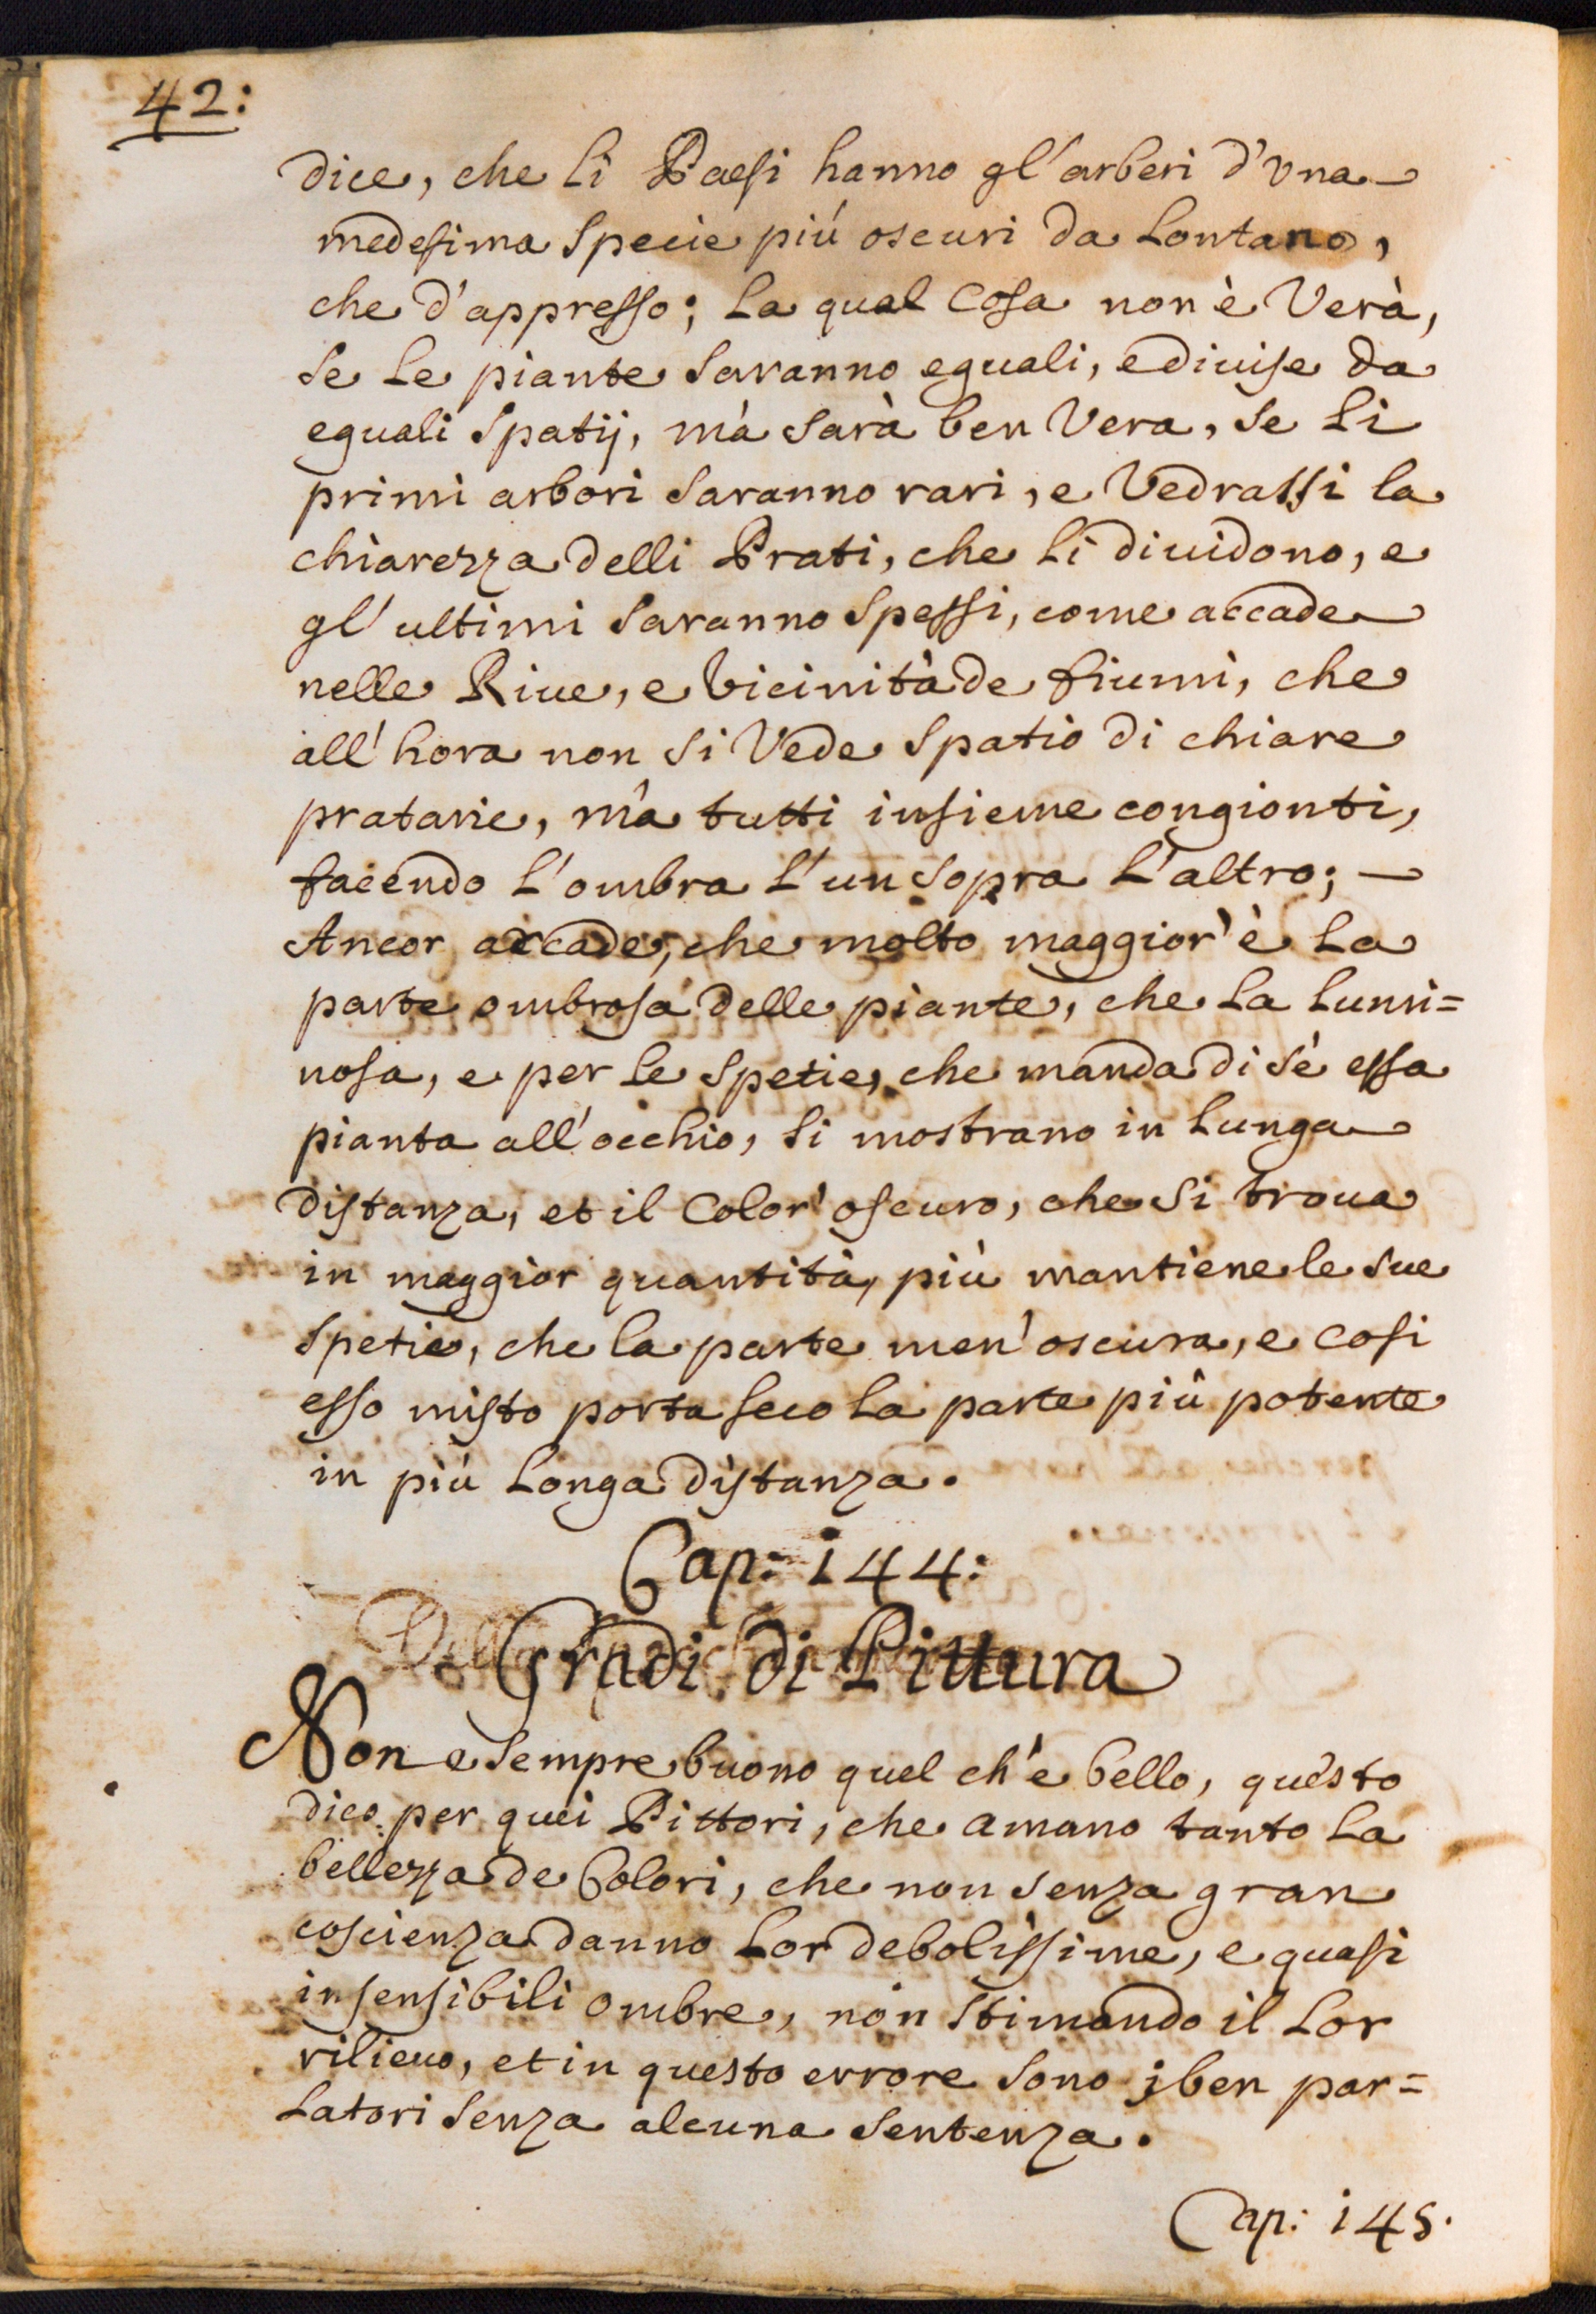 42:
dice, che li Paesi hanno gl'arberi d'una
medesima specie più oscuri da Lontano,
che d'appresso; La qual Cosa non è Verà,
se Le piante saranno eguali, e diuise da
eguali spatij, mà sarà ben Vera, se Li
primi arbori saranno rari, e Vedrassi la
chiarezza delli Prati, che li diuidono, e
gl'ultimi saranno spessi, come accade
nelle Riue, e Vicinità de fiumi, che
all'hora non si Vede spatio di chiare
pratarie, mà tutti insieme congionti,
facendo L'ombra L'un sopra L'altro;
Ancor accade, che molto maggior' è La
parte ombrosa delle piante, che La Lumi=
nosa, e per le spetie, che manda di sè essa
pianta all'occhio, si mostrano in Lunga
distanza, et il Color' oscuro, che si troua
in maggior quantità, più mantiene le sue
spetie, che la parte men' oscura, e Cosi
esso misto porta seco La parte più potente
in più Longa distanza.
Cap: 144:
Gradi di Pittura
Non e sempre buono quel ch'è bello, questo
dico per quei Pittori, che amano tanto La
bellezza de Colori, che non senza gran
coscienza danno Lor debolissime, e quasi
insensibili ombre, non stimando il Lor
rilieuo, et in questo errore sono j ben par=
latori senza alcuna sentenza.
Cap: 145.